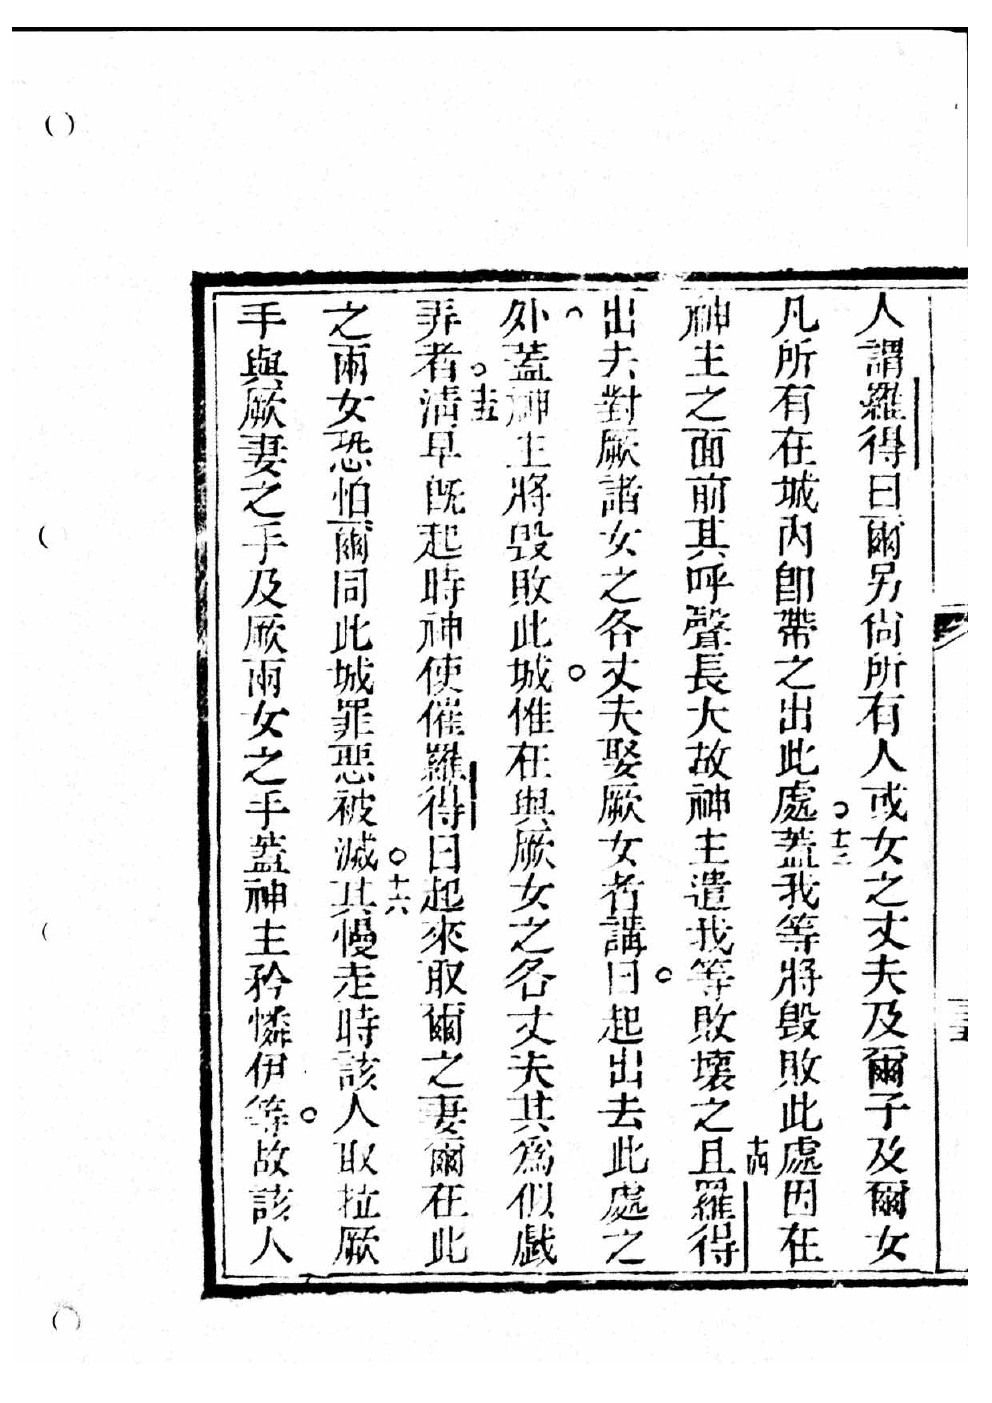 人謂羅得曰爾另尙所有人或女之丈夫及爾子及爾女
凡所有在城內卽帶之出此處○十三蓋我等將毀敗此處因在
神主之面前其呼聲長大故神主遣我等敗壞之十四且羅得
出去對厥諸女之各丈夫娶厥女者講曰○起出去此處之
外蓋神主將毀敗此城○惟在與厥女之各丈夫其爲似戱
弄者○十五淸早旣起時神使催羅得曰起來取爾之妻爾在此
之兩女恐怕爾同此城罪惡被滅○十六其慢走時該人取拉厥
手與厥妻之手及厥兩女之手蓋神主矜憐伊等○故該人